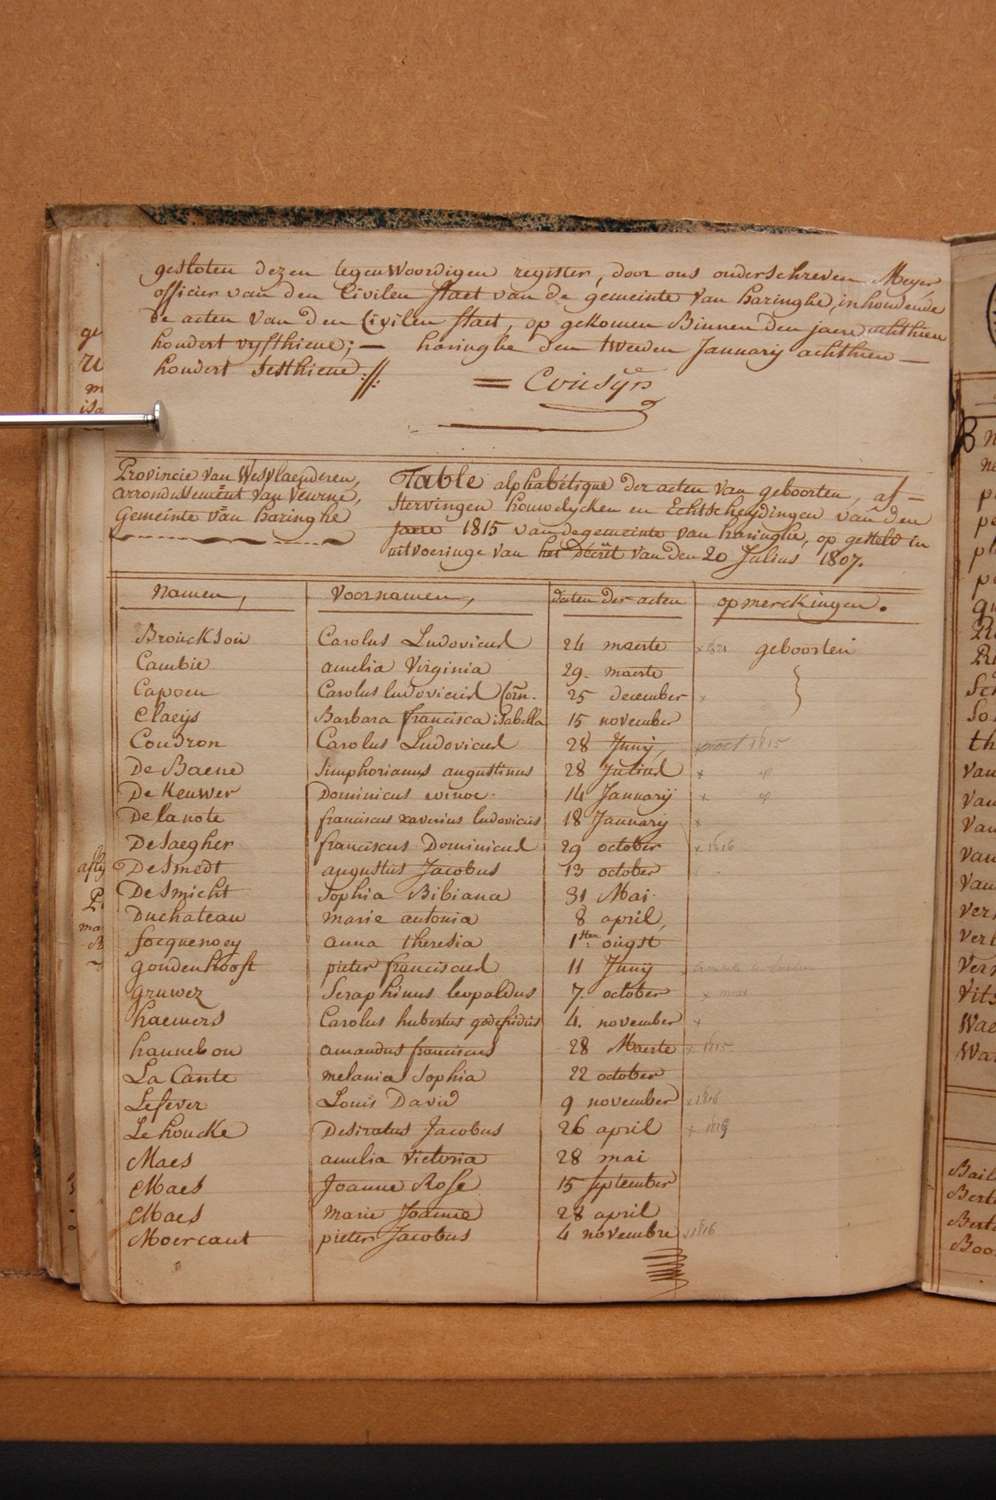 gesloten dezen tegenwoordigen register, door ons onderschreven Meyer
officier van den Civilen staet van de gemeinte van haringhe, inhoudende
de acten van den Civilen staet, op gekomen Binnen den jaere achthien
hondert vyfthiene; — haringhe den tweeden January achthien —
hondert sesthiene.//.
= Cousyn
Provincie van Westvlaenderen,
arrondissement van Veurne,
Gemeinte van haringhe
Table alphabétique der acten van geboorten, af-
stervingen houwelycken en Echtscheydingen van den
Jaere 1815 van de gemeente van haringhe, op gesteld in
uitvoeringe van het décrét van den 20 Julius 1807.
Namen, Voornamen, daten der acten opmerckingen.
Brouckson Carolus Ludovicus 24 maerte geboorten
Cambie amelia Virginia 29. maerte
Capoen Carolus ludovicus Corn. 25 december
Claeys Barbara francisca isabella 15 november
Coudron Carolus Ludovicus 28 Junÿ
De Baene Simphorianus augustinus 28 Julius
De Keuwer Dominicus winoc. 14 Januarÿ
De la note franciscus xaverius ludovicus 18 January
De Saegher franciscus Dominicus 29 october x 1816
De Smedt augustus Jacobus 13 october
De Smicht Sophia Bibiana 31 Mai
Duchateau marie antonia 8 april,
focquenoey anna theresia 1sten ougst
goudenhooft pieter franciscus 11 Junÿ
gruwez Seraphinus leopoldus 7. october
haemers Carolus hubertus godefridus 4. november
hannebou amandus franciscus 28 Maerte x 1815
La Cante melania Sophia 22 october
Lefever Louis David 9 november x 1816
Le houcke Desiratus Jacobus 26 april x 1819
Maes amelia Victoria 28 mai
Maes Joanne Rose 15 september
Maes marie Joanne 28 april
Moercant pieter Jacobus 4 novembre x 1816